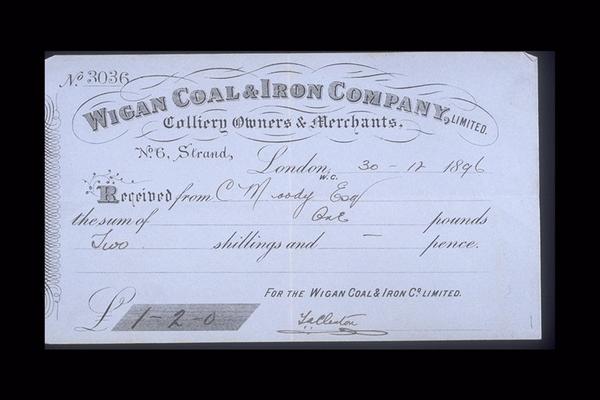 No 3036
WIGAN COAL & IRON COMPANY, LIMITED.
Colliery Owners & Merchants.
No. 6, Strand,
London, W.C. 30 - 12 1896
Received from C Moody Esq
the sum of One pounds
Two shillings and — pence.
FOR THE WIGAN COAL & IRON Co. LIMITED.
£ 1-2-0